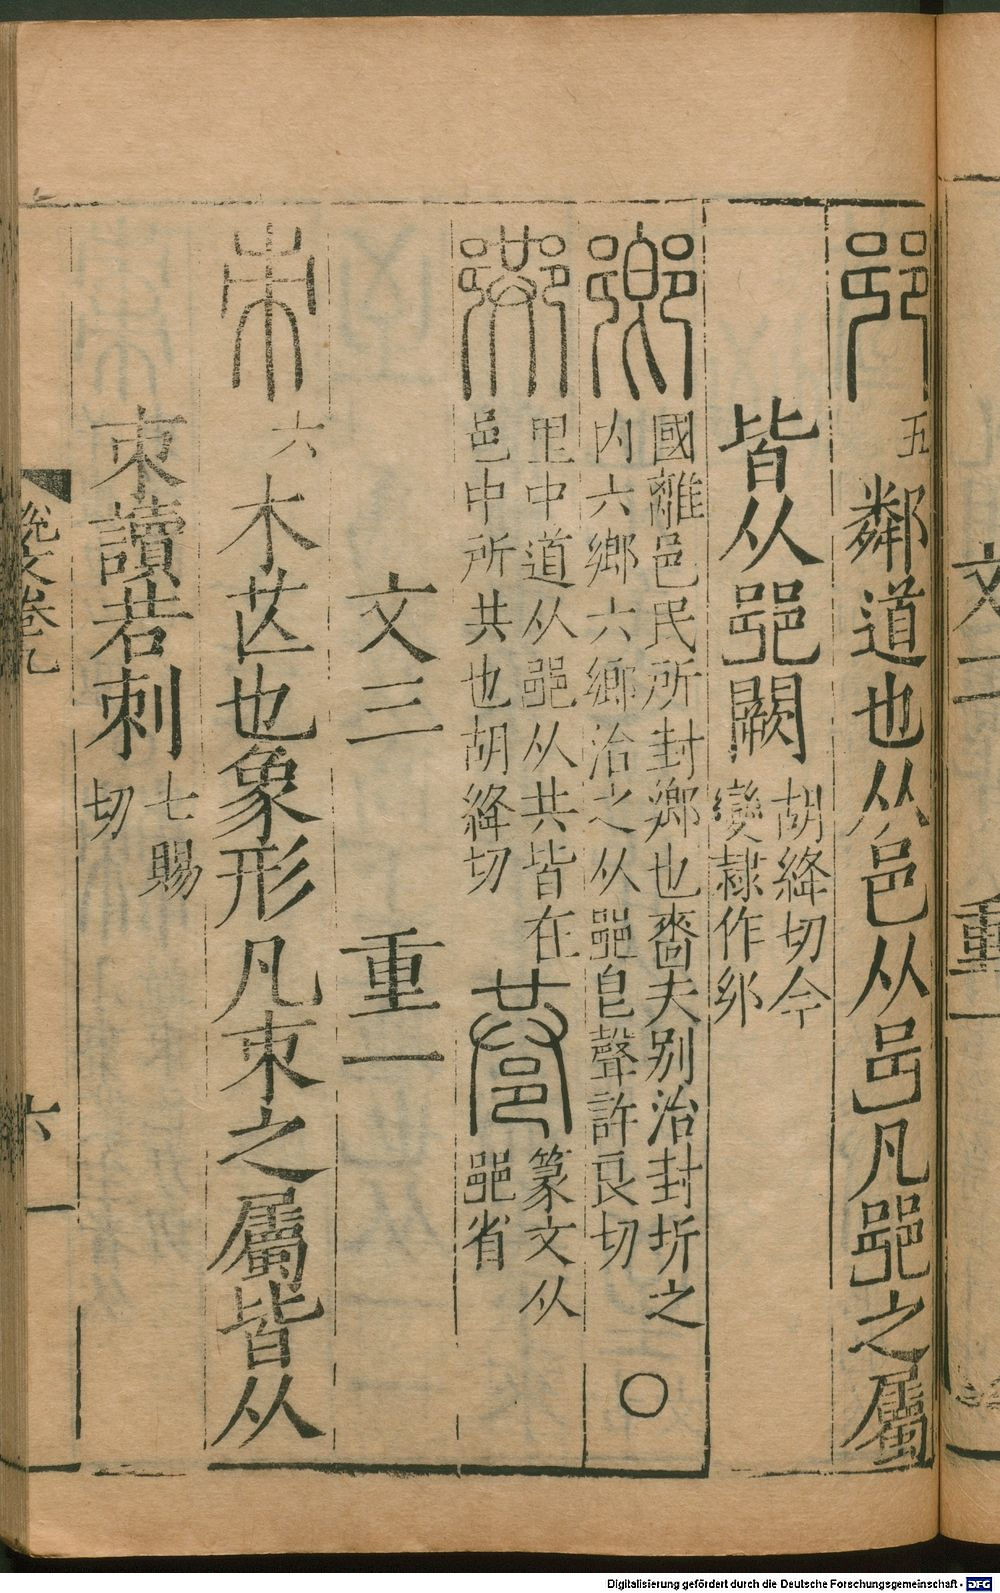 𨛜 五 鄰道也从邑从𠨍凡𨛜之屬
皆从𨛜闕 胡絳切今
變隸作𨙨
鄉 國離邑民所封鄉也嗇夫别治封圻之
内六鄉六鄉治之从𨛜皀聲許良切 〇
里中道从𨛜从共皆在
邑中所共也胡絳切
篆文从
𨛜省
文三 重一
朿 六 木芒也象形凡朿之屬皆从
朿讀若刺 七賜
切
說文卷九
六
文二 重一
Digitalisierung gefördert durch die Deutsche Forschungsgemeinschaft - DFG